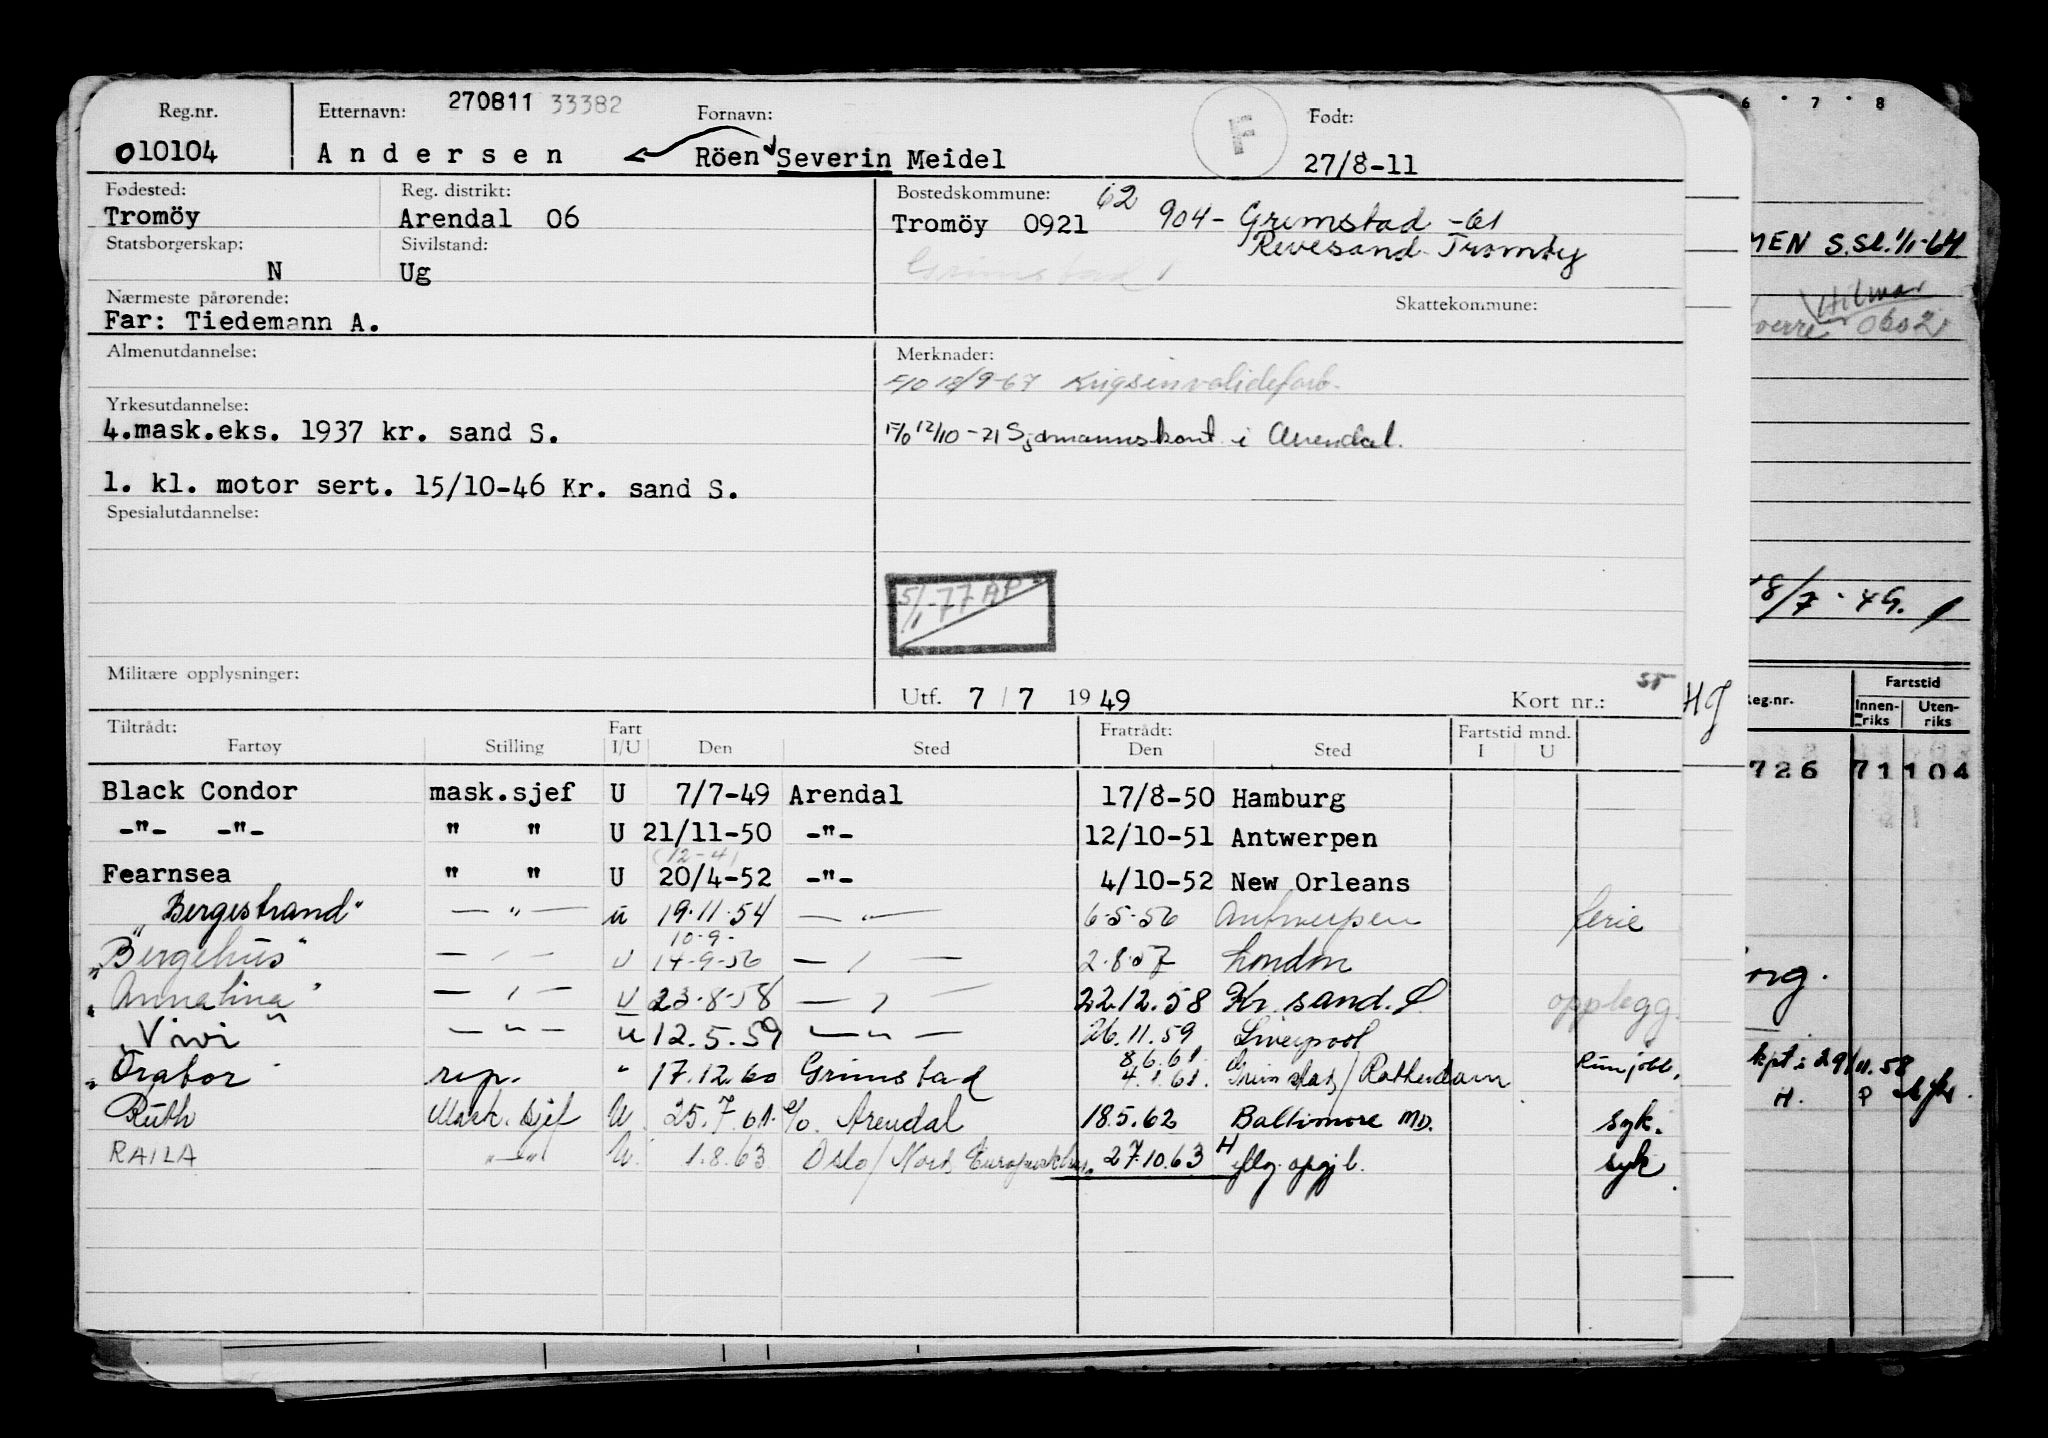 Reg.nr. Etternavn: 270811 33382 Fornavn: F Født:
010104 Andersen Röen Severin Meidel 27/8-11
Fødested: Reg. distrikt: Bostedskommune: 62
Tromöy Arendal 06 Tromöy 0921 904- Grimstad -61
Statsborgerskap: Sivilstand: Revesand Tromöy
N Ug Grimstad
Nærmeste pårørende: Skattekommune:
Far: Tiedemann A.
Almenutdannelse: Merknader:
F/O 18/9-67 Krigsinvalideforb.
Yrkesutdannelse:
4.mask.eks. 1937 kr. sand S. F/O 12/10-71 Sjømannskont i Arendal.
1. kl. motor sert. 15/10-46 Kr. sand S.
Spesialutdannelse:
5/1-77 AP
Militære opplysninger: 55
Utf. 7/7 1949 Kort nr.:
Tiltrådt: Fart Fratrådt: Fartstid mnd.
Fartøy Stilling I/U Den Sted Den Sted I U
Black Condor mask.sjef U 7/7-49 Arendal 17/8-50 Hamburg
-"- -"- " " U 21/11-50 -"- 12/10-51 Antwerpen
(12-4)
Fearnsea " " U 20/4-52 -"- 4/10-52 New Orleans
"Bergestrand" -"- u 19.11.54 -"- 6-5-56 Antwerpen ferie
10-9-
"Bergehus" -"- U 14-9-56 -"- 2.8.57 London
"Annalina" -"- U 23-8-58 -"- 22.12.58 Kr. sand. S. opplegg.
"Vivi" -"- u 12.5.59 -"- 26.11.59 Liverpool
8.6.61.
"Orabor" rep. " 17.12.60 Grimstad 4.1.61. Grimstad/Rotterdam
Ruth Mask. sjef U. 25.7.61. c/o. Arendal 18.5.62 Baltimore MD. syk.
RAILA -"- U. 1.8.63 Oslo/Nord 27.10.63 H flg. oppgj b. syk
6 7 8
MEN S.Sl. 1/1-64
Hilmar
0602
18/7-49.
HJ
Reg.nr. Fartstid
Innenriks Utenriks
726 71 104
org.
kpt. 29/11.58
H. P